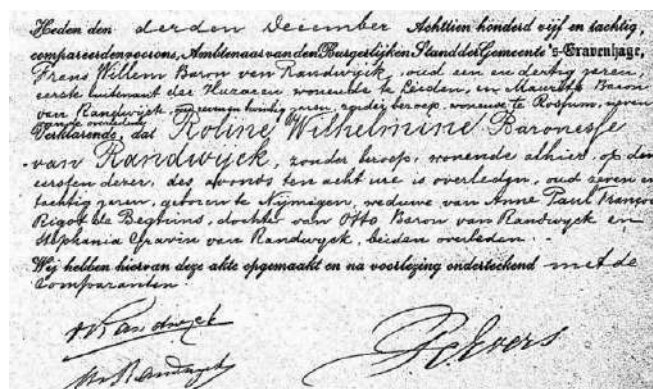 Heden den derden December Achttien honderd vijf en tachtig,
compareerden voor ons, Ambtenaar van den Burgerlijken Stand der Gemeente 's-Gravenhage,
Frans Willem Baron van Randwyck, oud een en dertig jaren,
eerste luitenant der Huzaren wonende te Leiden, en Maurits Baron
van Randwijck, oud zeven en twintig jaren, zonder beroep, wonende te Rossum, neven
van de overledene
Verklarende, dat Roline Wilhelmine Baronesse
van Randwijck, zonder beroep, wonende alhier, op den
eersten dezer, des avonds ten acht ure is overleden, oud zeven en
tachtig jaren, geboren te Nijmegen, weduwe van Anne Paul François
Rigot de Begnins, dochter van Otto Baron van Randwyck en
Stephania Gravin van Randwyck, beiden overleden.
Wij hebben hiervan deze akte opgemaakt en na voorlezing onderteekend met de
Comparanten.
Randwyck
Randwyck Evers